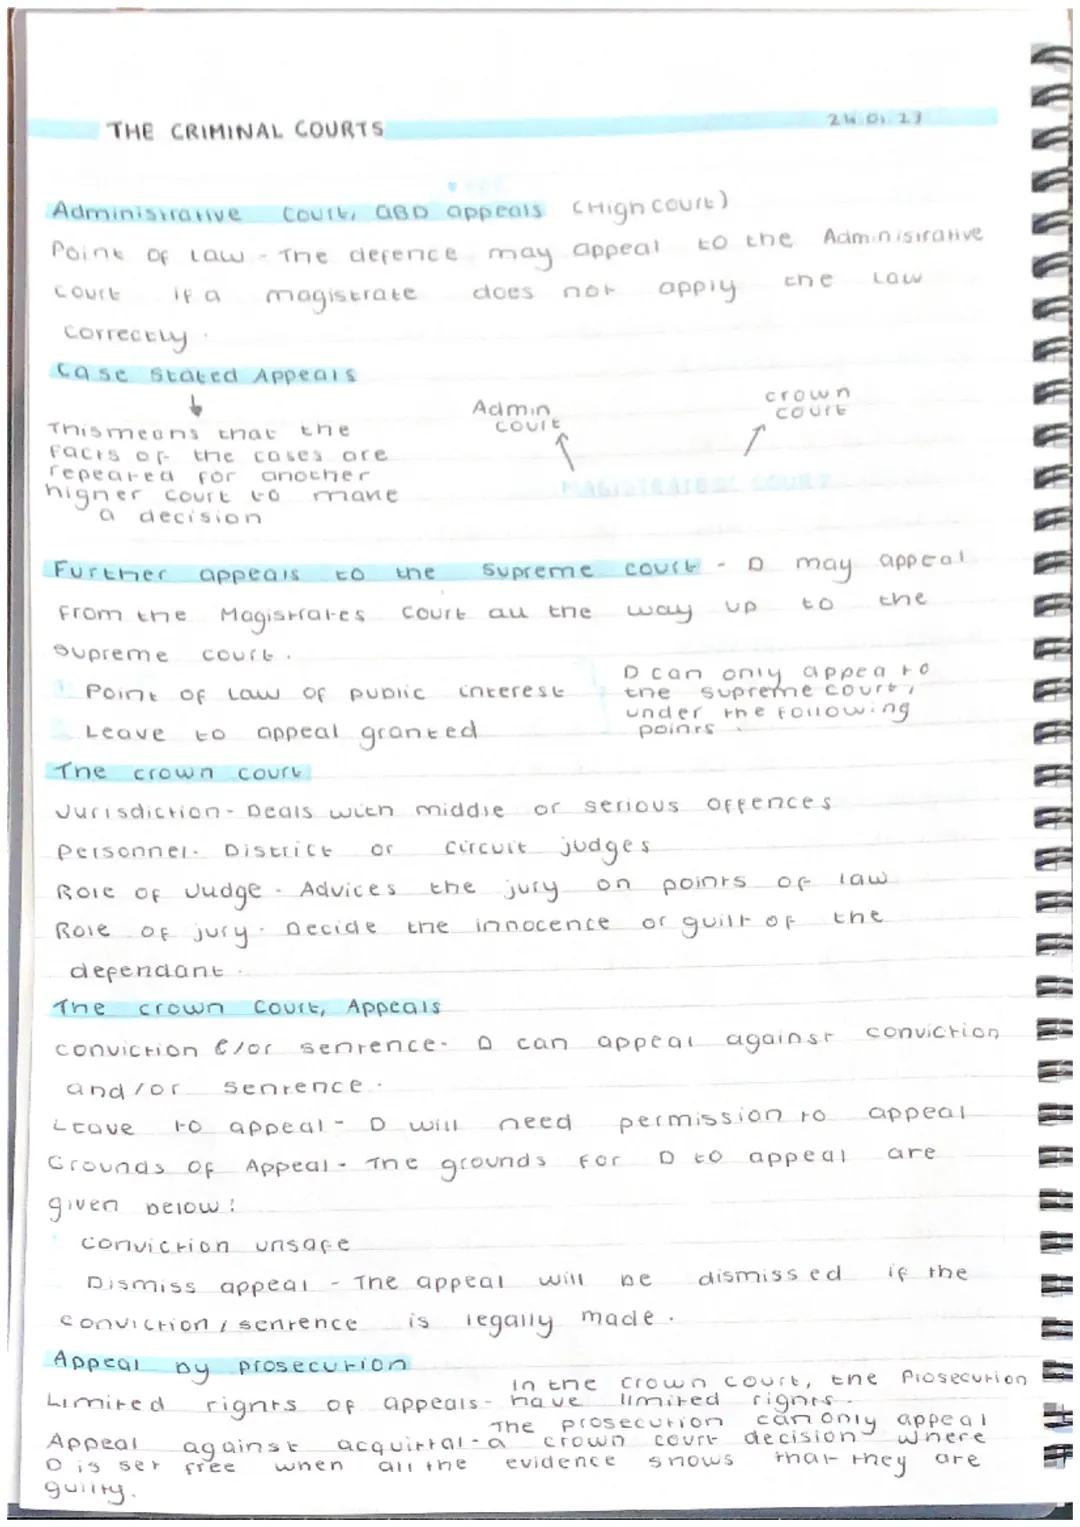 THE CRIMINAL COURTS
24.01.23
Administrative Court, QBD appeals (High court)
Point of Law - The defence may appeal to the Administrative
court if a magistrate does not apply the law
correctly.
Case Stated Appeals
This means that the
facts of the cases are
repeated for another
higher court to make
a decision
Admin
court
crown
court
MAGISTRATES COURT
Further appeals to the Supreme court - D may appeal
from the Magistrates Court all the way up to the
Supreme court.
1. Point of Law of public interest
Leave to appeal granted
D can only appea to
the supreme court,
under the following
points.
The crown court
Jurisdiction - Deals with middle or serious offences
Personnel - District or circuit judges
Role of Judge - Advices the jury on points of law
Role of jury - Decide the innocence or guilt of the
defendant.
The crown Court, Appeals
conviction &/or sentence - D can appeal against conviction
and/or sentence.
Leave to appeal - D will need permission to appeal
Grounds of Appeal - The grounds for D to appeal are
given below:
conviction unsafe
Dismiss appeal - The appeal will be dismissed if the
conviction / sentence is legally made.
Appeal by prosecution
Limited rights of appeals - In the crown court, the Prosecution
have limited rights.
Appeal against acquittal - The prosecution can only appeal
a crown court decision where
D is set free when all the evidence shows that they are
guilty.